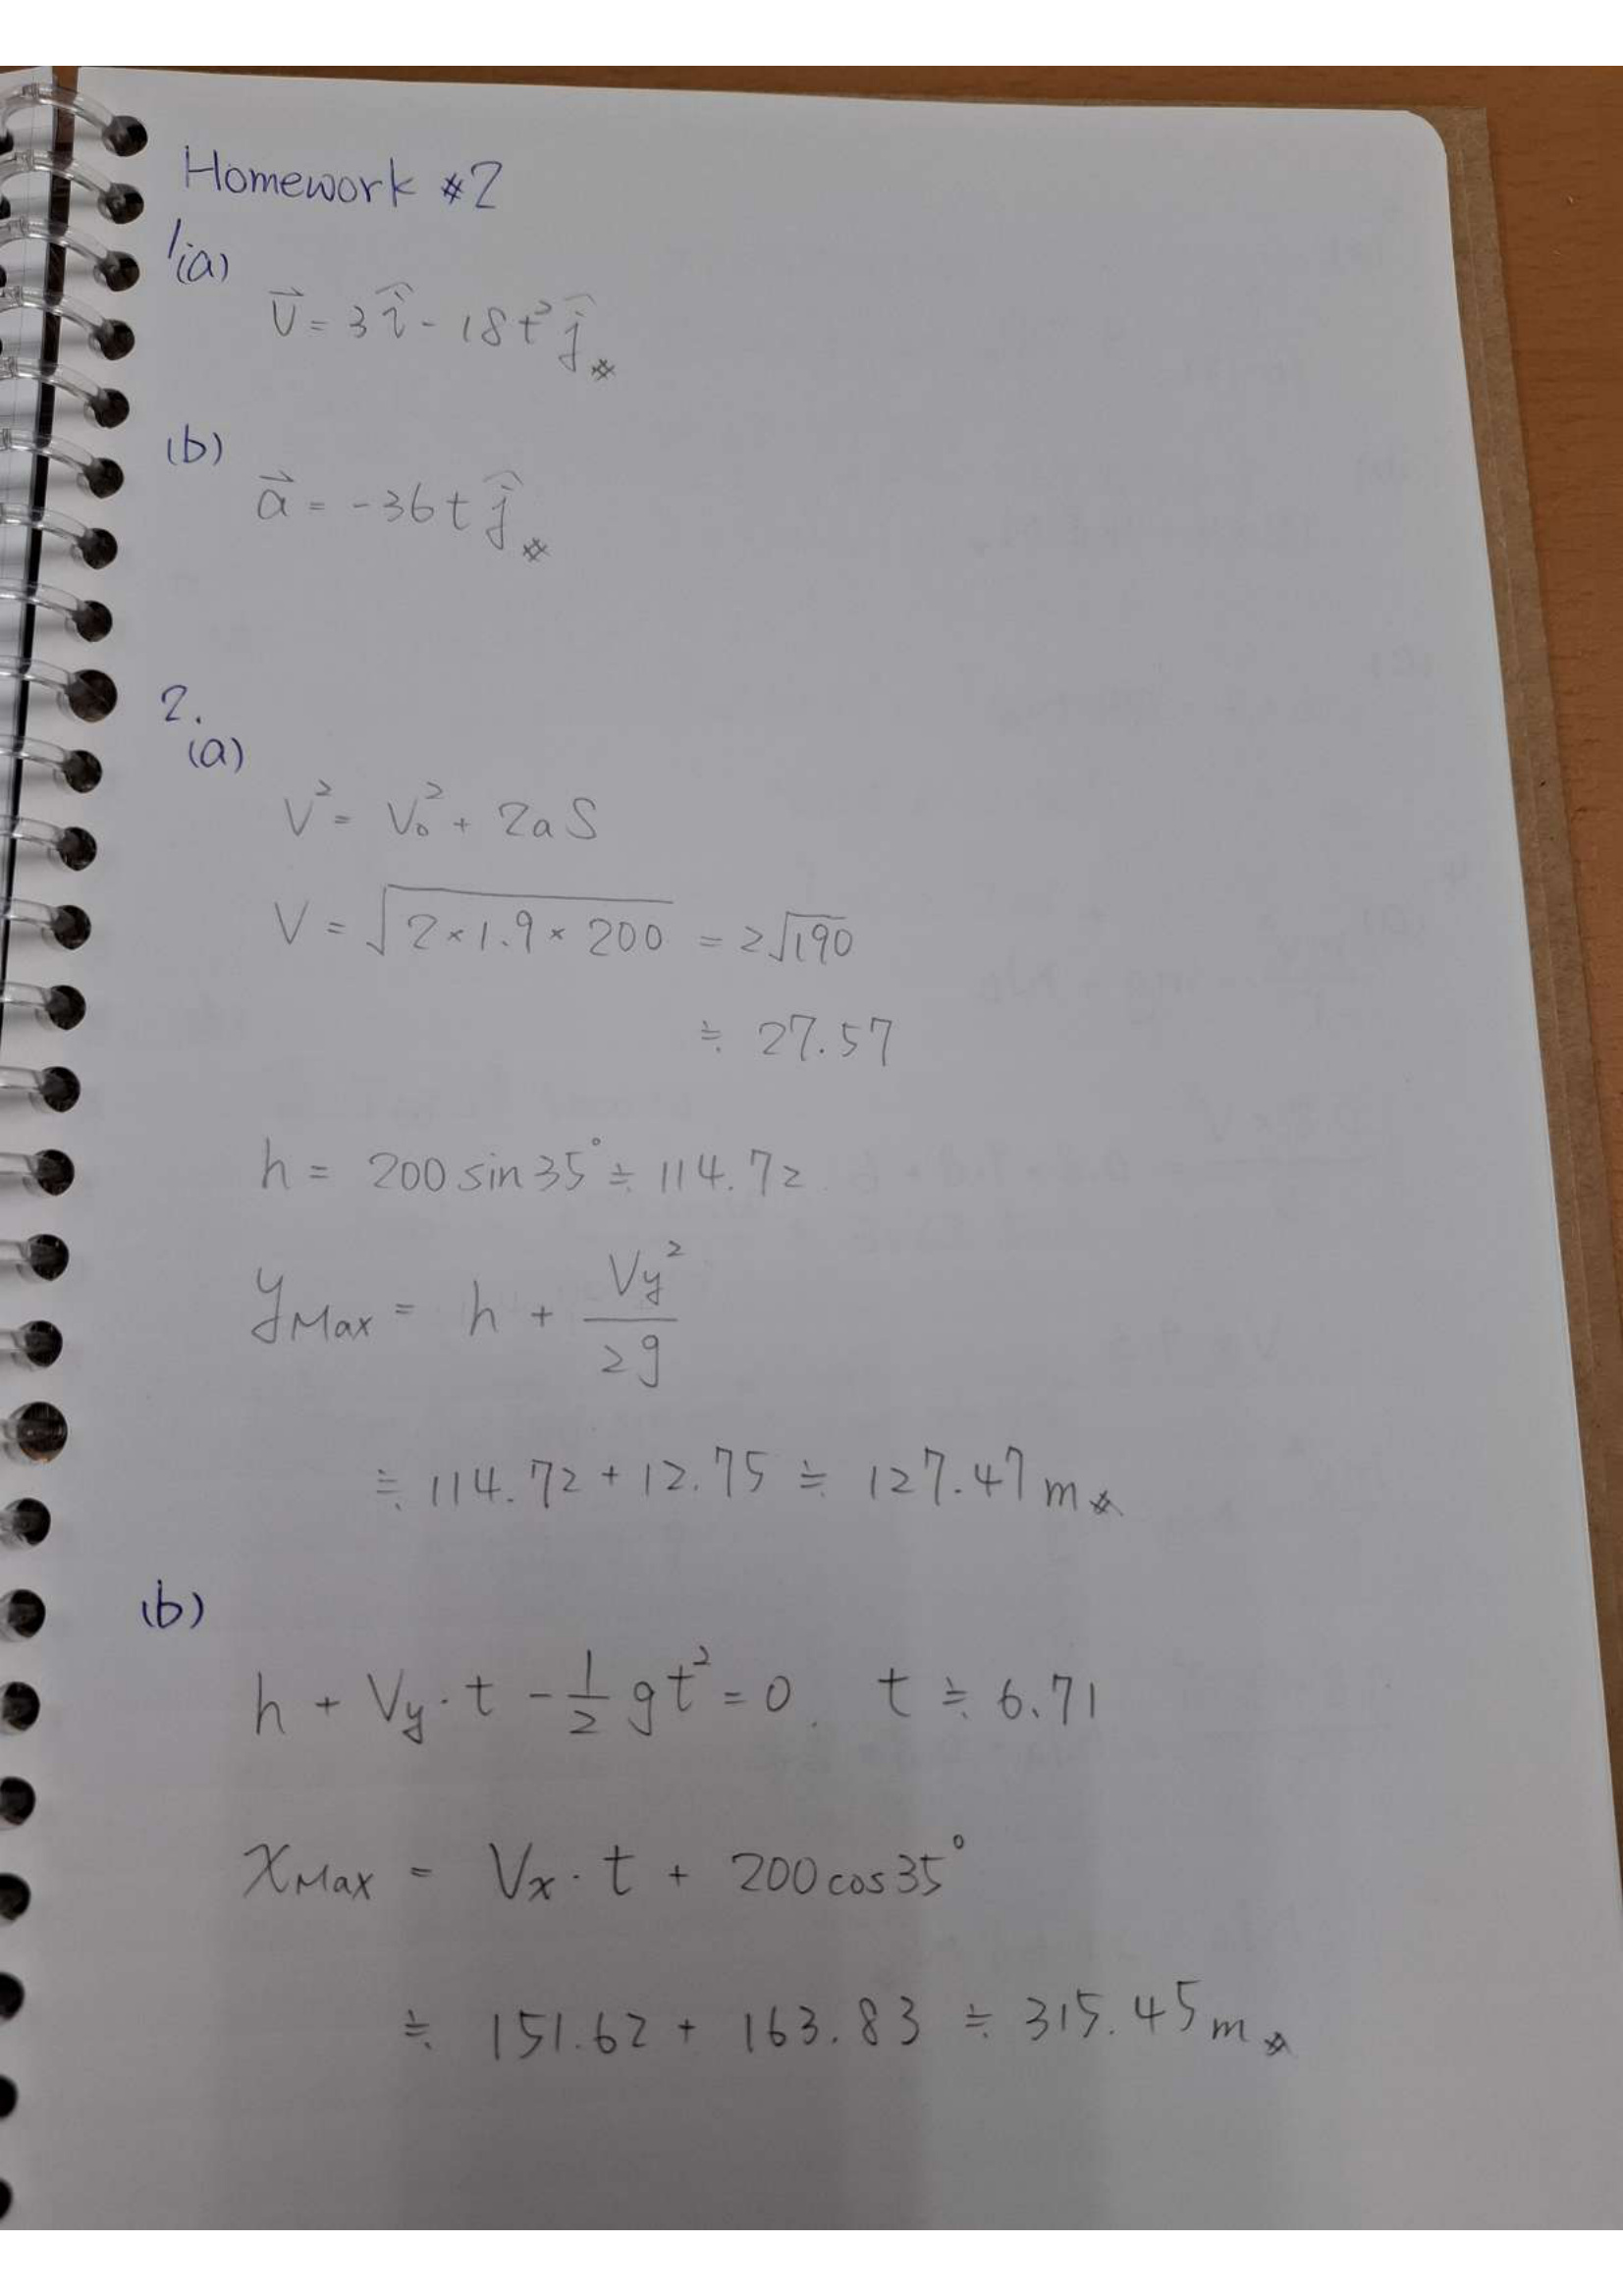 Homework #2
1.(a)
v⃗ = 3î - 18t²ĵ #
(b)
a⃗ = -36tĵ #
2.
(a)
V² = V₀² + 2aS
V = √(2×1.9×200) = 2√190
≒ 27.57
h = 200 sin35° ≒ 114.72
yMax = h + Vy²/2g
≒ 114.72 + 12.75 ≒ 127.47 m #
(b)
h + Vy·t - ½gt² = 0. t ≒ 6.71
xMax = Vx·t + 200cos35°
≒ 151.62 + 163.83 ≒ 315.45 m #